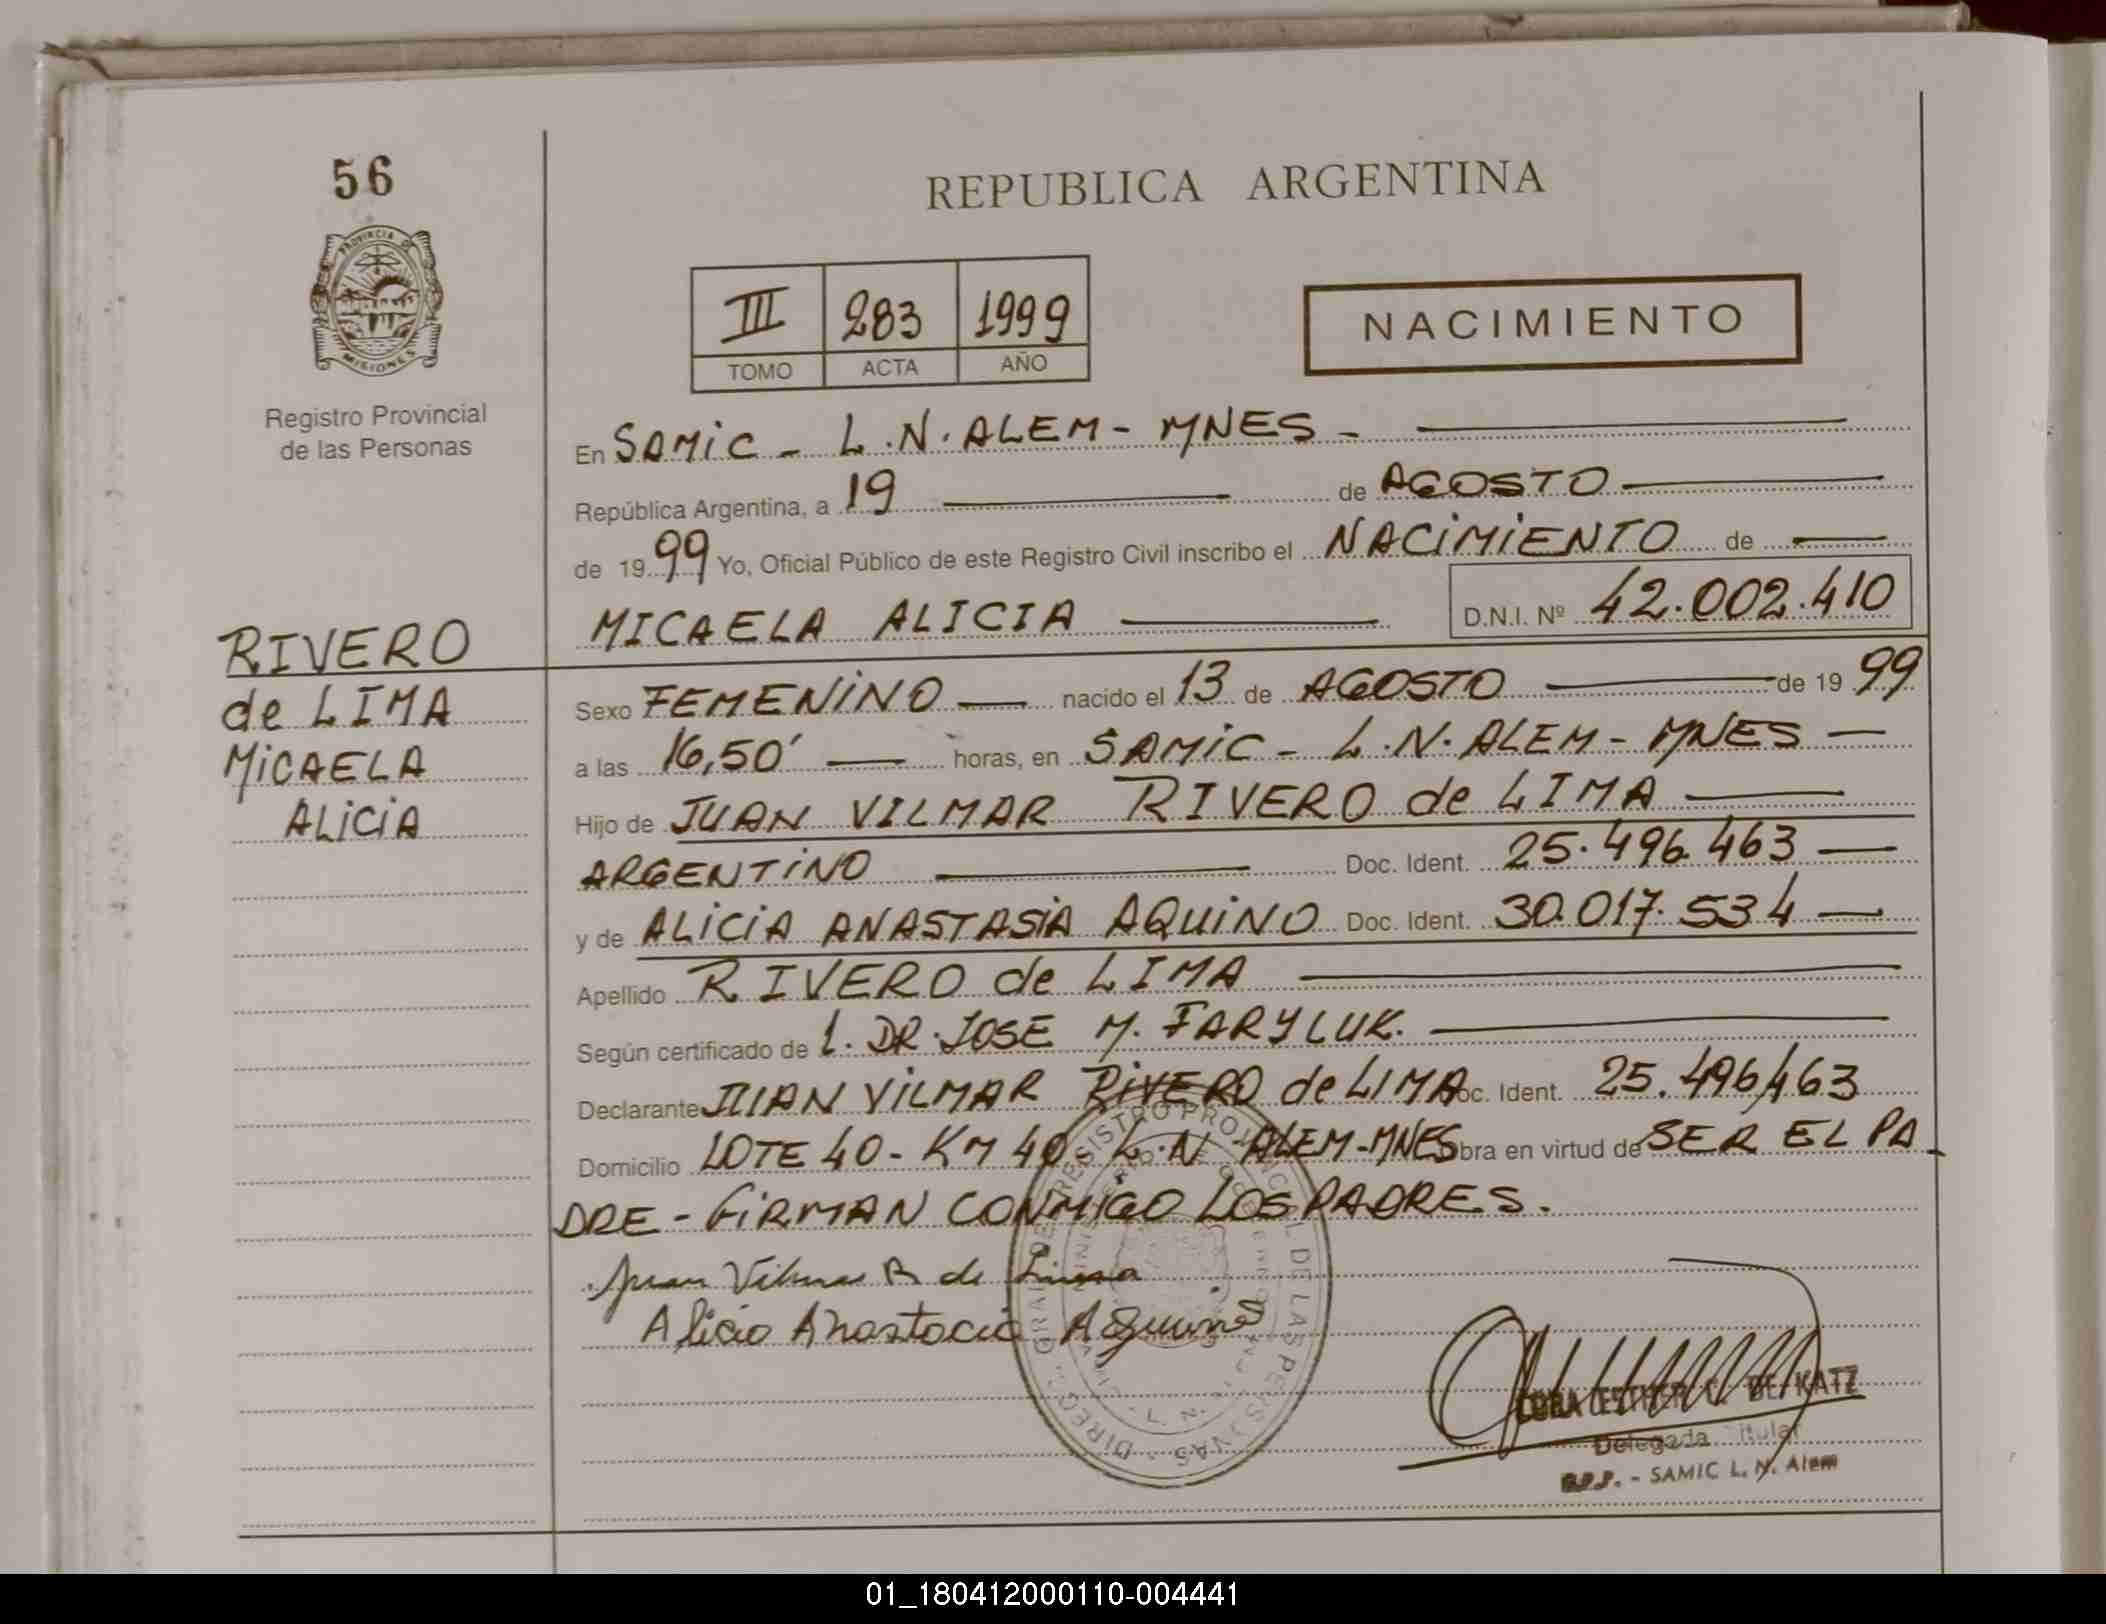 56
PROVINCIA DE
MISIONES
Registro Provincial
de las Personas
REPUBLICA ARGENTINA
III 283 1999
TOMO ACTA AÑO
NACIMIENTO
RIVERO
de LIMA
MICAELA
ALICIA
En SAMIC - L.N. ALEM - MNES -
República Argentina, a 19 de AGOSTO
de 1999 Yo, Oficial Público de este Registro Civil inscribo el NACIMIENTO de
MICAELA ALICIA D.N.I. Nº 42.002.410
Sexo FEMENINO nacido el 13 de AGOSTO de 1999
a las 16,50' horas, en SAMIC - L.N. ALEM - MNES
Hijo de JUAN VILMAR RIVERO de LIMA
ARGENTINO Doc. Ident. 25.496.463
y de ALICIA ANASTASIA AQUINO Doc. Ident. 30.017.534
Apellido RIVERO de LIMA
Según certificado de 1. DR. JOSE M. FARYLUK.
Declarante JUAN VILMAR RIVERO de LIMA Doc. Ident. 25.496.463
Domicilio LOTE 40 - KM 40 - L.N ALEM - MNES Obra en virtud de SER EL PA
DRE - FIRMAN CONMIGO LOS PADRES.
Juan Vilmar R de Lima
Alicia Anastacia Aquino
DIREC. GRAL. DE REGISTRO PROVINCIAL DE LAS PERSONAS
L. N.
ESTHER C. DE KATZ
Delegada Titular
R.P.P. - SAMIC L. N. Alem
01_180412000110-004441